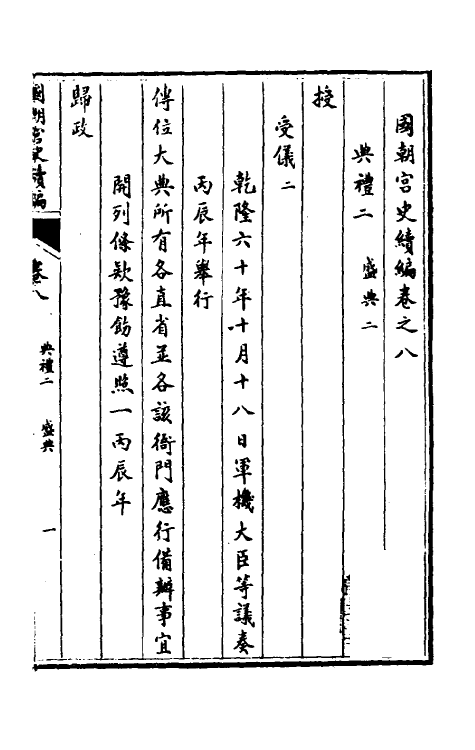 國朝宮史續編卷之八
典禮二 盛典二
授
受儀二
乾隆六十年十月十八日軍機大臣等議奏
丙辰年舉行
傳位大典所有各直省並各該衙門應行備辦事宜
開列條款豫飭遵照一丙辰年
歸政
國朝宮史續編
卷八
典禮二 盛典
一